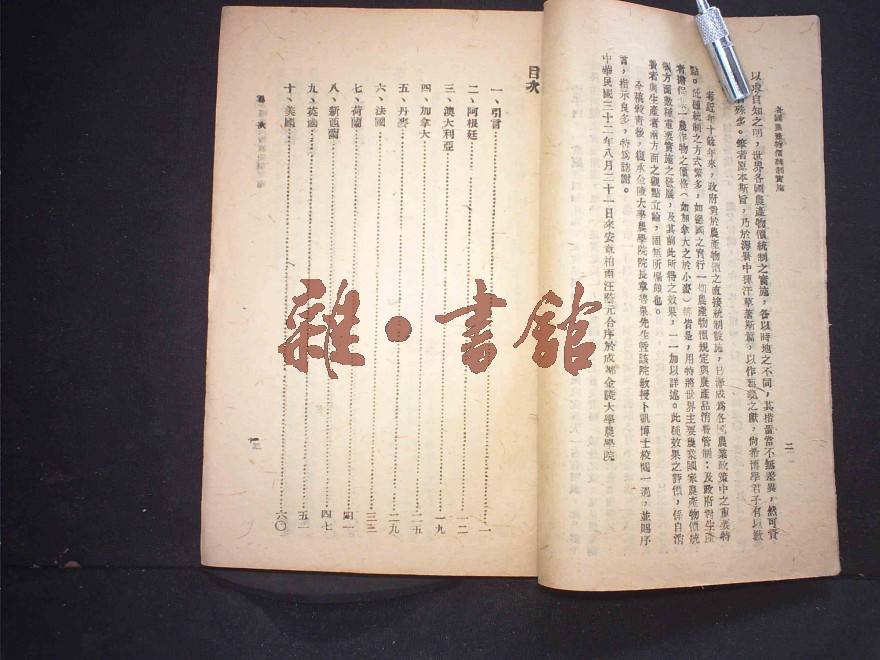 各國農產物價統制實施
二
以求自知之明,世界各國農產物價統制之實施,各以時地之不同,其措置當不無差異,然可資
殊多。筆者原本斯旨,乃於海暑中揮汗草著斯篇,以作芻蕘之獻,尚希博學君子有以敎
考近年十餘年來,政府對於農產物價之直接統制設施,日漸成爲各國農業政策中之重要特
點。此種統制之方式繁多,如德國之實行一切農產物價規定與農產品消費管制;及政府對生產
者擔保某一農作物之價格(如加拿大之於小麥)等皆是,用特將世界主要農業國家農產物價統
制方面數種重要實施之發展,及其前此所得之效果,一一加以詳述。此種效果之評價,係自消
費者與生產者兩方面之觀點立論,固無所偏頗也。
本稿殺靑後,復承金陵大學農學院院長章之汶先生暨該院敎授卜凱博士校閱一過,並賜序
言,指示良多,特爲誌謝。
中華民國三十二年八月二十一日來安章柏雨汪蔭元合序於成都金陵大學農學院
目次
一、引言……一
二、阿根廷……一二
三、澳大利亞……一九
四、加拿大……二五
五、丹麥……二九
六、法國……三三
七、荷蘭……四一
八、新西蘭……四七
九、英國……五一
十、美國……六〇
目次
一
雜•書館